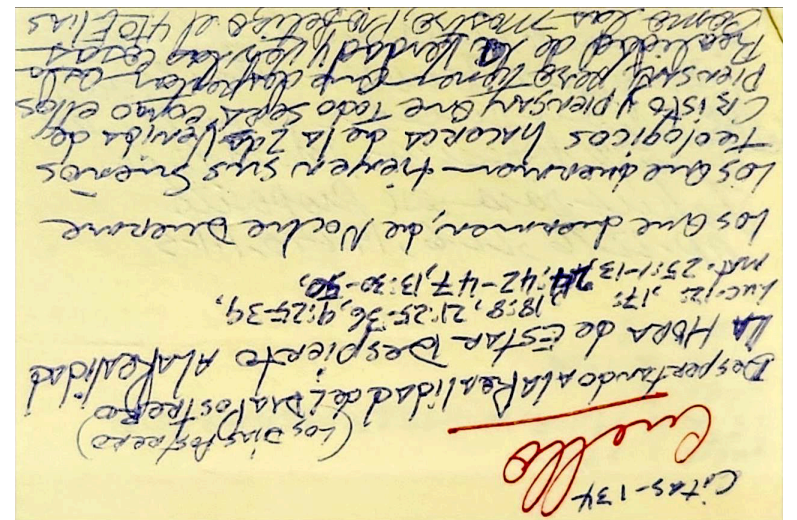 Citas-134
Cuello
(Los Dias postrero)
Despertando a la Realidad del Dia Postrero
LA HORA de ESTAR DESPIERTO A La Realidad
Luc. 12: ,17: 18:8, 21:25-36, 9:25-39,
mat. 25:1-13, 24:42-47, 13:30-50,
Los que duermen, de Noche Duerme
Los que duermen tienen sus sueños
Teologicos hacerca de la 2da Venida de
Cristo y piensan que todo será como ellos
piensan, pero tienen que despertar a la
Realidad de la Verdad y ver las cosas
Como las mostró, Profetizo el 4to Elias